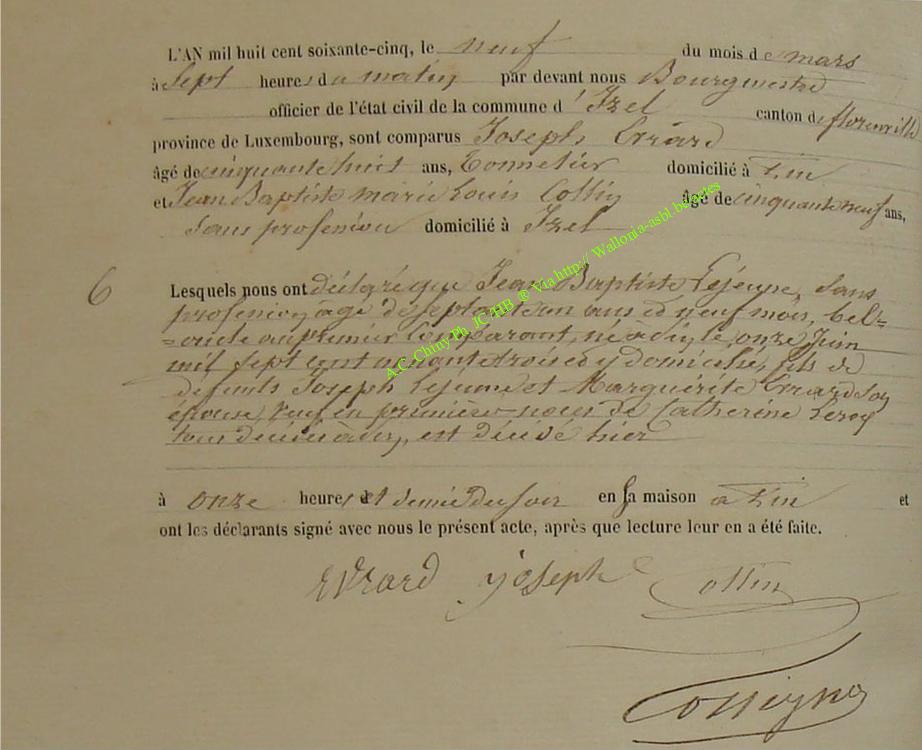 L'AN mil huit cent soixante-cinq, le neuf du mois de mars
à Sept heures du matin par devant nous Bourgmestre
officier de l'état civil de la commune d'Izel canton de florenville
province de Luxembourg, sont comparus Joseph Evrard
âgé de cinquante huit ans, Tonnelier domicilié à
et Jean Baptiste marie Louis Collin âgé de cinquante neuf ans,
Sans profession domicilié à Izel
6 Lesquels nous ont déclaré que Jean Baptiste Lejeune, Sans
profession, âgé de septante un ans et neuf mois, bel-
oncle au premier Comparant, né à le onze Juin
mil sept cent nonante trois et y domicilié, fils de
défunts Joseph Lejeune et Marguérite Evrard Son
épouse, veuf en première noces de Catherine Leroy
tous décédés à est décédé hier
à onze heures et demie du soir en sa maison à et
ont les déclarants signé avec nous le présent acte, après que lecture leur en a été faite.
Evrard yoseph Collin
A.C. Chiny Ph. JC HB ® Via http:// Wallonia-asbl.be/actes